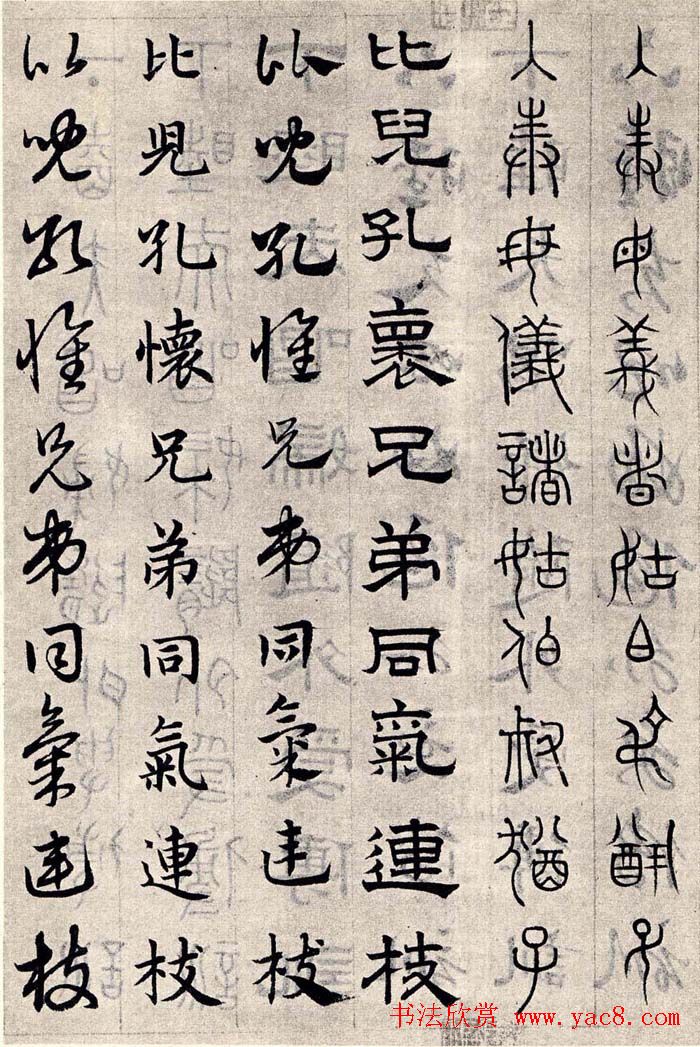 入奉母儀諸姑伯叔猶子
入奉母儀諸姑伯叔猶子
比兒孔懷兄弟同氣連枝
比兒孔懷兄弟同氣連枝
比兒孔懷兄弟同氣連枝
比兒孔懷兄弟同氣連枝
书法欣赏 www.yac8.com